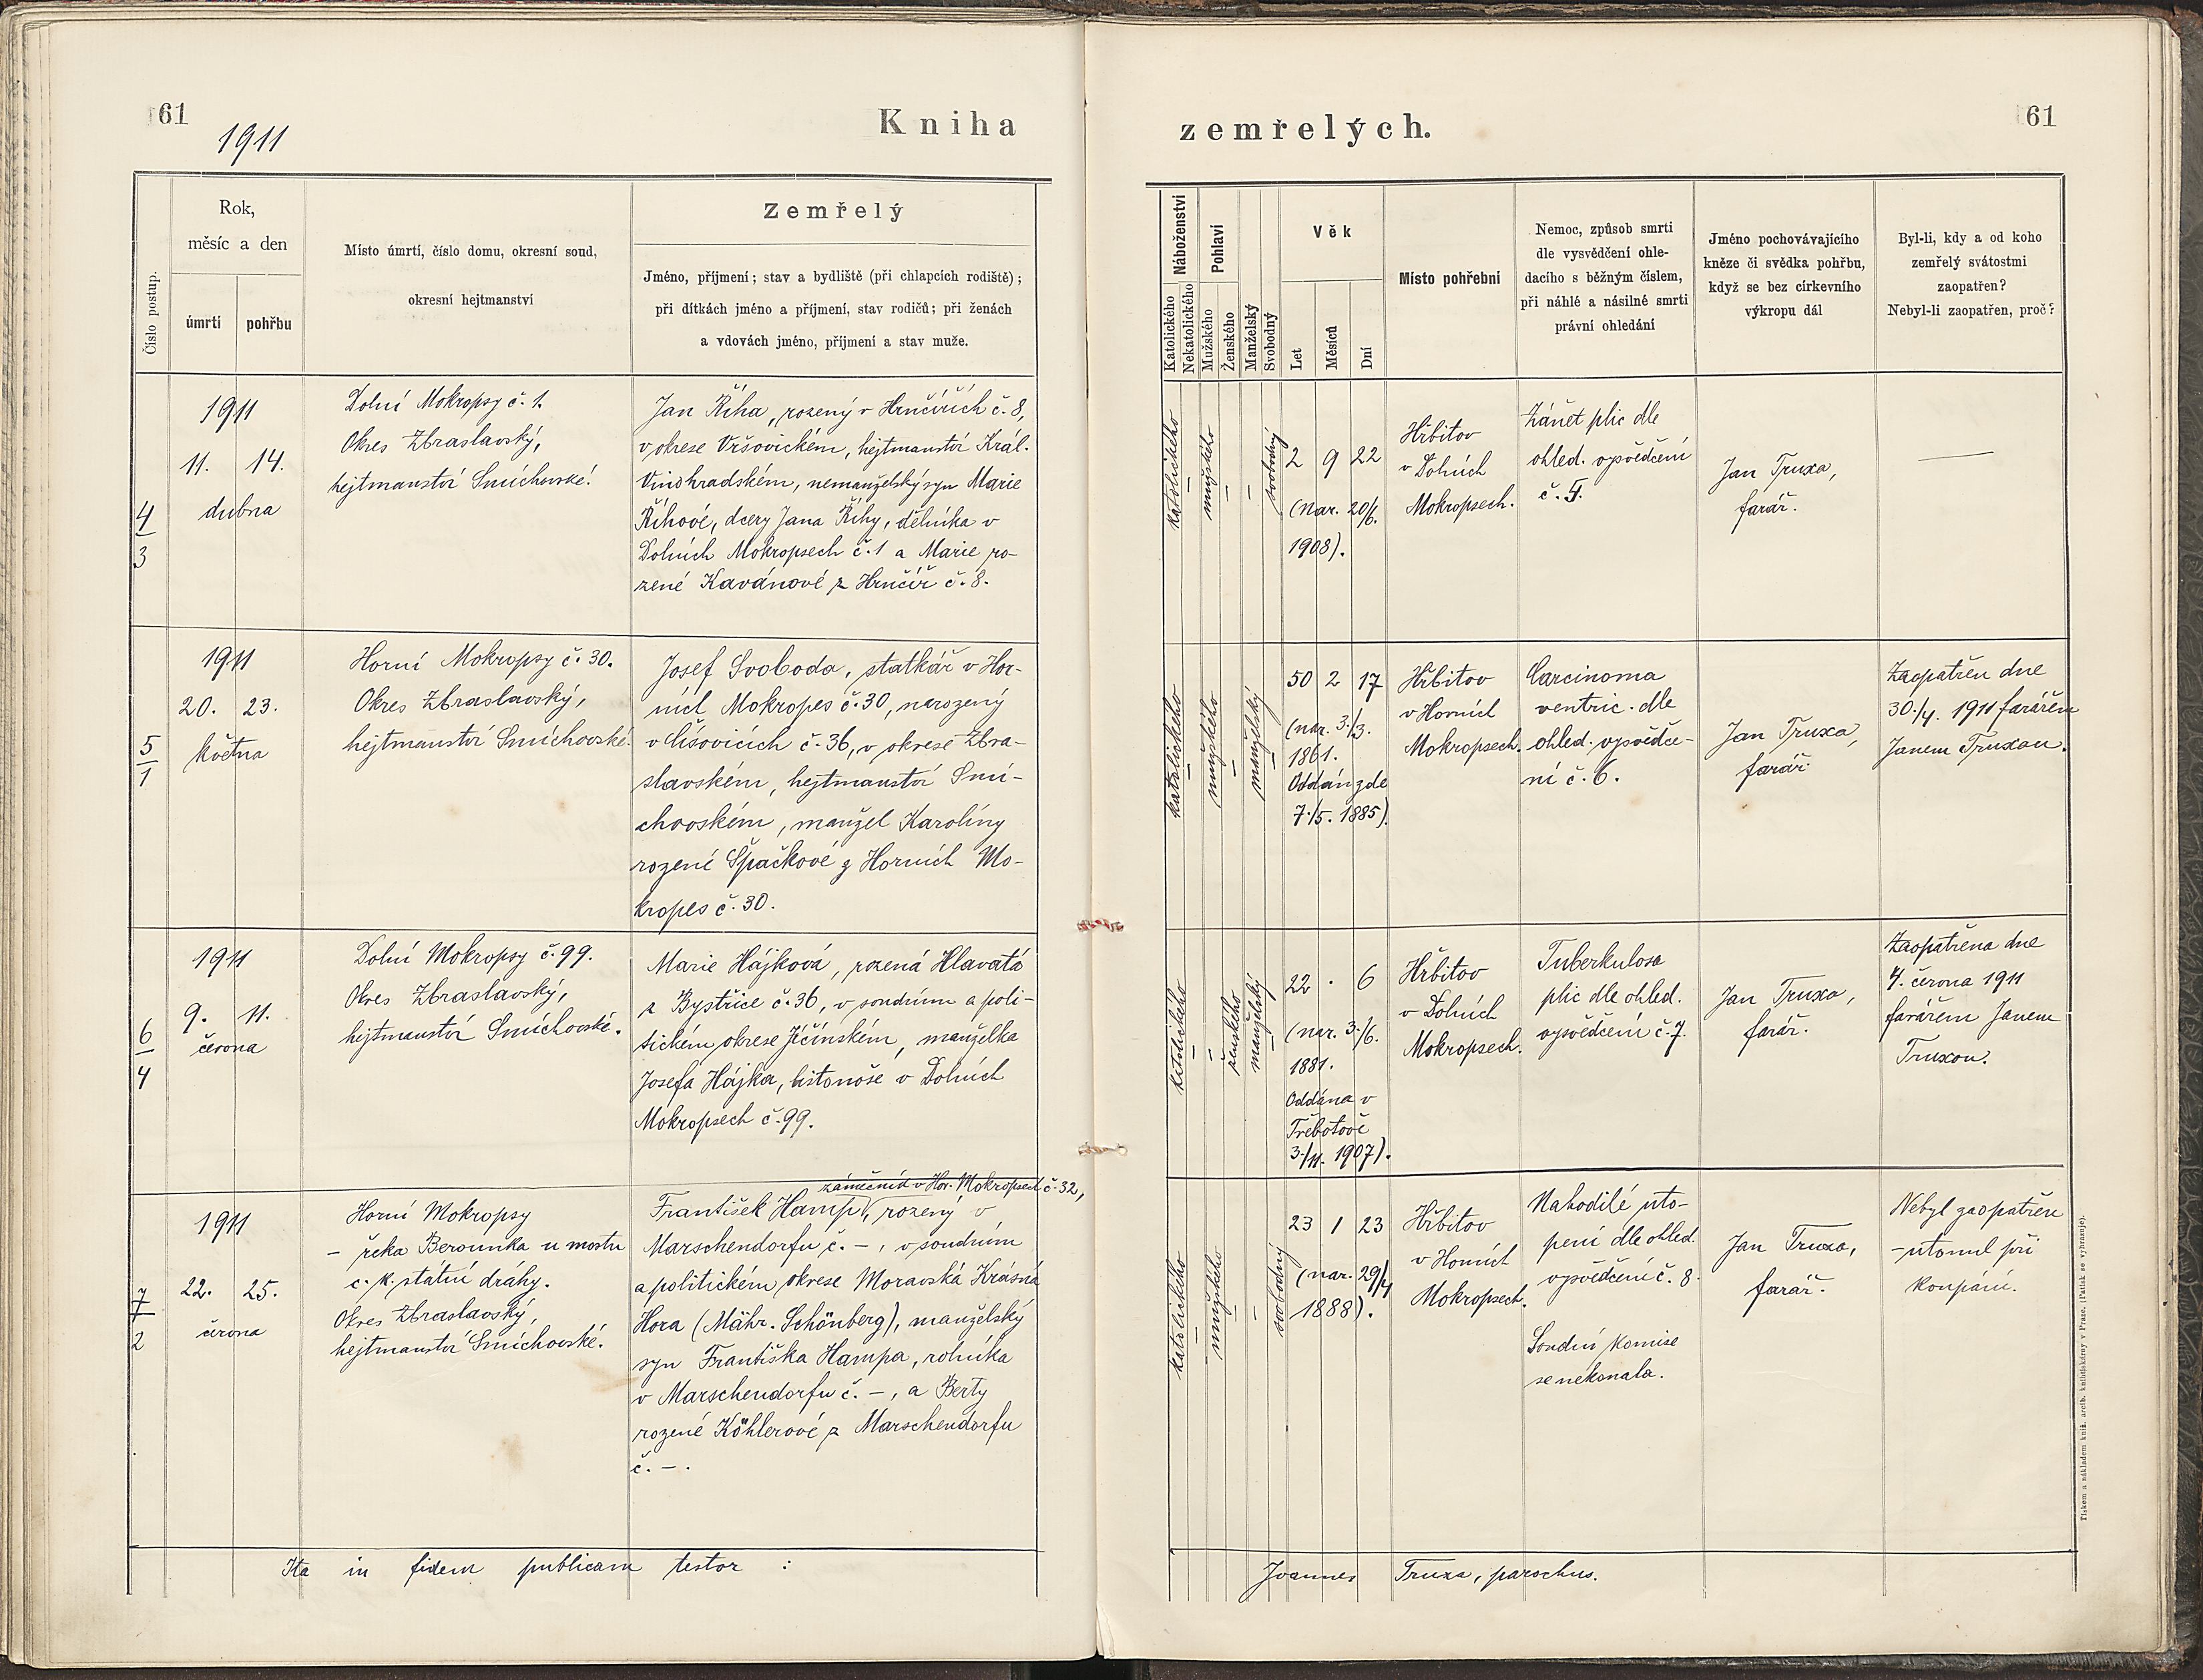 61
1911
Kniha
Číslo postup.
Rok,
měsíc a den
úmrtí
pohřbu
Místo úmrtí, číslo domu, okresní soud,
okresní hejtmanství
Zemřelý
Jméno, příjmení; stav a bydliště (při chlapcích rodiště);
při dítkách jméno a příjmení, stav rodičů; při ženách
a vdovách jméno, příjmení a stav muže.
4
3
1911
11. 14.
dubna
Dolní Mokropsy č. 1.
Okres Zbraslavský,
hejtmanství Smíchovské.
Jan Říha, rozený v Hrnčířích č. 8,
v okrese Vršovickém, hejtmanství Král.
Vinohradském, nemanželský syn Marie
Říhové, dcery Jana Říhy, dělníka v
Dolních Mokropsech č. 1 a Marie ro-
zené Kavánové z Hrnčíř č. 8.
5
1
1911
20. 23.
května
Horní Mokropsy č. 30.
Okres Zbraslavský,
hejtmanství Smíchovské.
Josef Svoboda, statkář v Hor-
ních Mokropes č. 30, narozený
v Lišovicích č. 36, v okrese Zbra-
slavském, hejtmanství Smí-
chovském, manžel Karolíny
rozené Špačkové z Horních Mo-
kropes č. 30.
6
4
1911
9. 11.
června
Dolní Mokropsy č. 99.
Okres Zbraslavský,
hejtmanství Smíchovské.
Marie Hájková, rozená Hlavatá
z Bystřice č. 36, v soudním a poli-
tickém okrese Jičínském, manželka
Josefa Hájka, listonoše v Dolních
Mokropsech č. 99.
7
2
1911
22. 25.
června
Horní Mokropsy
– řeka Berounka u mostu
c. k. státní dráhy.
Okres Zbraslavský,
hejtmanství Smíchovské.
zámečník v Hor. Mokropsech č. 32,
František Hampl, rozený v
Marschendorfu č. –, v soudním
a politickém okrese Moravská Krásná
Hora (Mähr. Schönberg), manželský
syn Františka Hampa, rolníka
v Marschendorfu č. –, a Berty
rozené Köhlerové z Marschendorfu
č. – .
Ita in fidem publicam testor :
zemřelých.
61
Náboženství
Katolického
Nekatolického
Pohlaví
Mužského
Ženského
Manželský
Svobodný
Věk
Let
Měsíců
Dní
Místo pohřební
Nemoc, způsob smrti
dle vysvědčení ohle-
dacího s běžným číslem,
při náhlé a násilné smrti
právní ohledání
Jméno pochovávajícího
kněze či svědka pohřbu,
když se bez církevního
výkropu dál
Byl-li, kdy a od koho
zemřelý svátostmi
zaopatřen?
Nebyl-li zaopatřen, proč?
katolického
–
mužského
–
–
svobodný
2 9 22
(nar. 20/6.
1908).
Hřbitov
v Dolních
Mokropsech.
Zánět plic dle
ohled. vysvědčení
č. 5.
Jan Truxa,
farář.
—
katolického
–
mužského
–
manželský
–
50 2 17
(nar. 3./3.
1861.
Oddán zde
7./5. 1885).
Hřbitov
v Horních
Mokropsech.
Carcinoma
ventric. dle
ohled. vysvědče-
ní č. 6.
Jan Truxa,
farář.
Zaopatřen dne
30./4. 1911 farářem
Janem Truxou.
katolického
–
–
ženského
manželský
–
22 . 6
(nar. 3./6.
1881.
Oddána v
Třebotově
3./11. 1907).
Hřbitov
v Dolních
Mokropsech.
Tuberkulosa
plic dle ohled.
vysvědčení č. 7.
Jan Truxa,
farář.
Zaopatřena dne
4. června 1911
farářem Janem
Truxou.
katolického
–
mužského
–
–
svobodný
23 1 23
(nar. 29/4
1888).
Hřbitov
v Horních
Mokropsech.
Nahodilé uto-
pení dle ohled.
vysvědčení č. 8.
Soudní komise
se nekonala.
Jan Truxa,
farář.
Nebyl zaopatřen
– utonul při
koupání.
Joannes Truxa, parochus.
Tiskem a nákladem kníž. arcib. knihtiskárny v Praze. (Patisk se vyhrazuje).